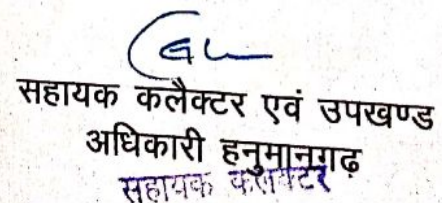 सहायक कलैक्टर एवं उपखण्ड
अधिकारी हनुमानगढ़
सहायक कलक्टर